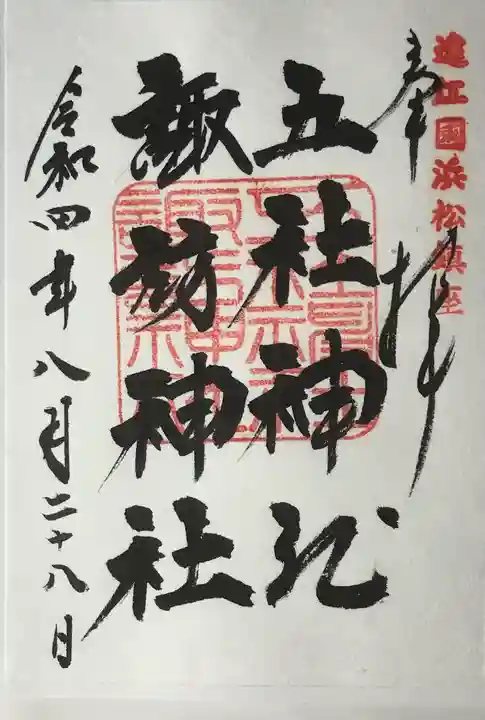 遠江國浜松鎮座
奉拝
五社神社
諏訪神社
令和四年八月二十八日